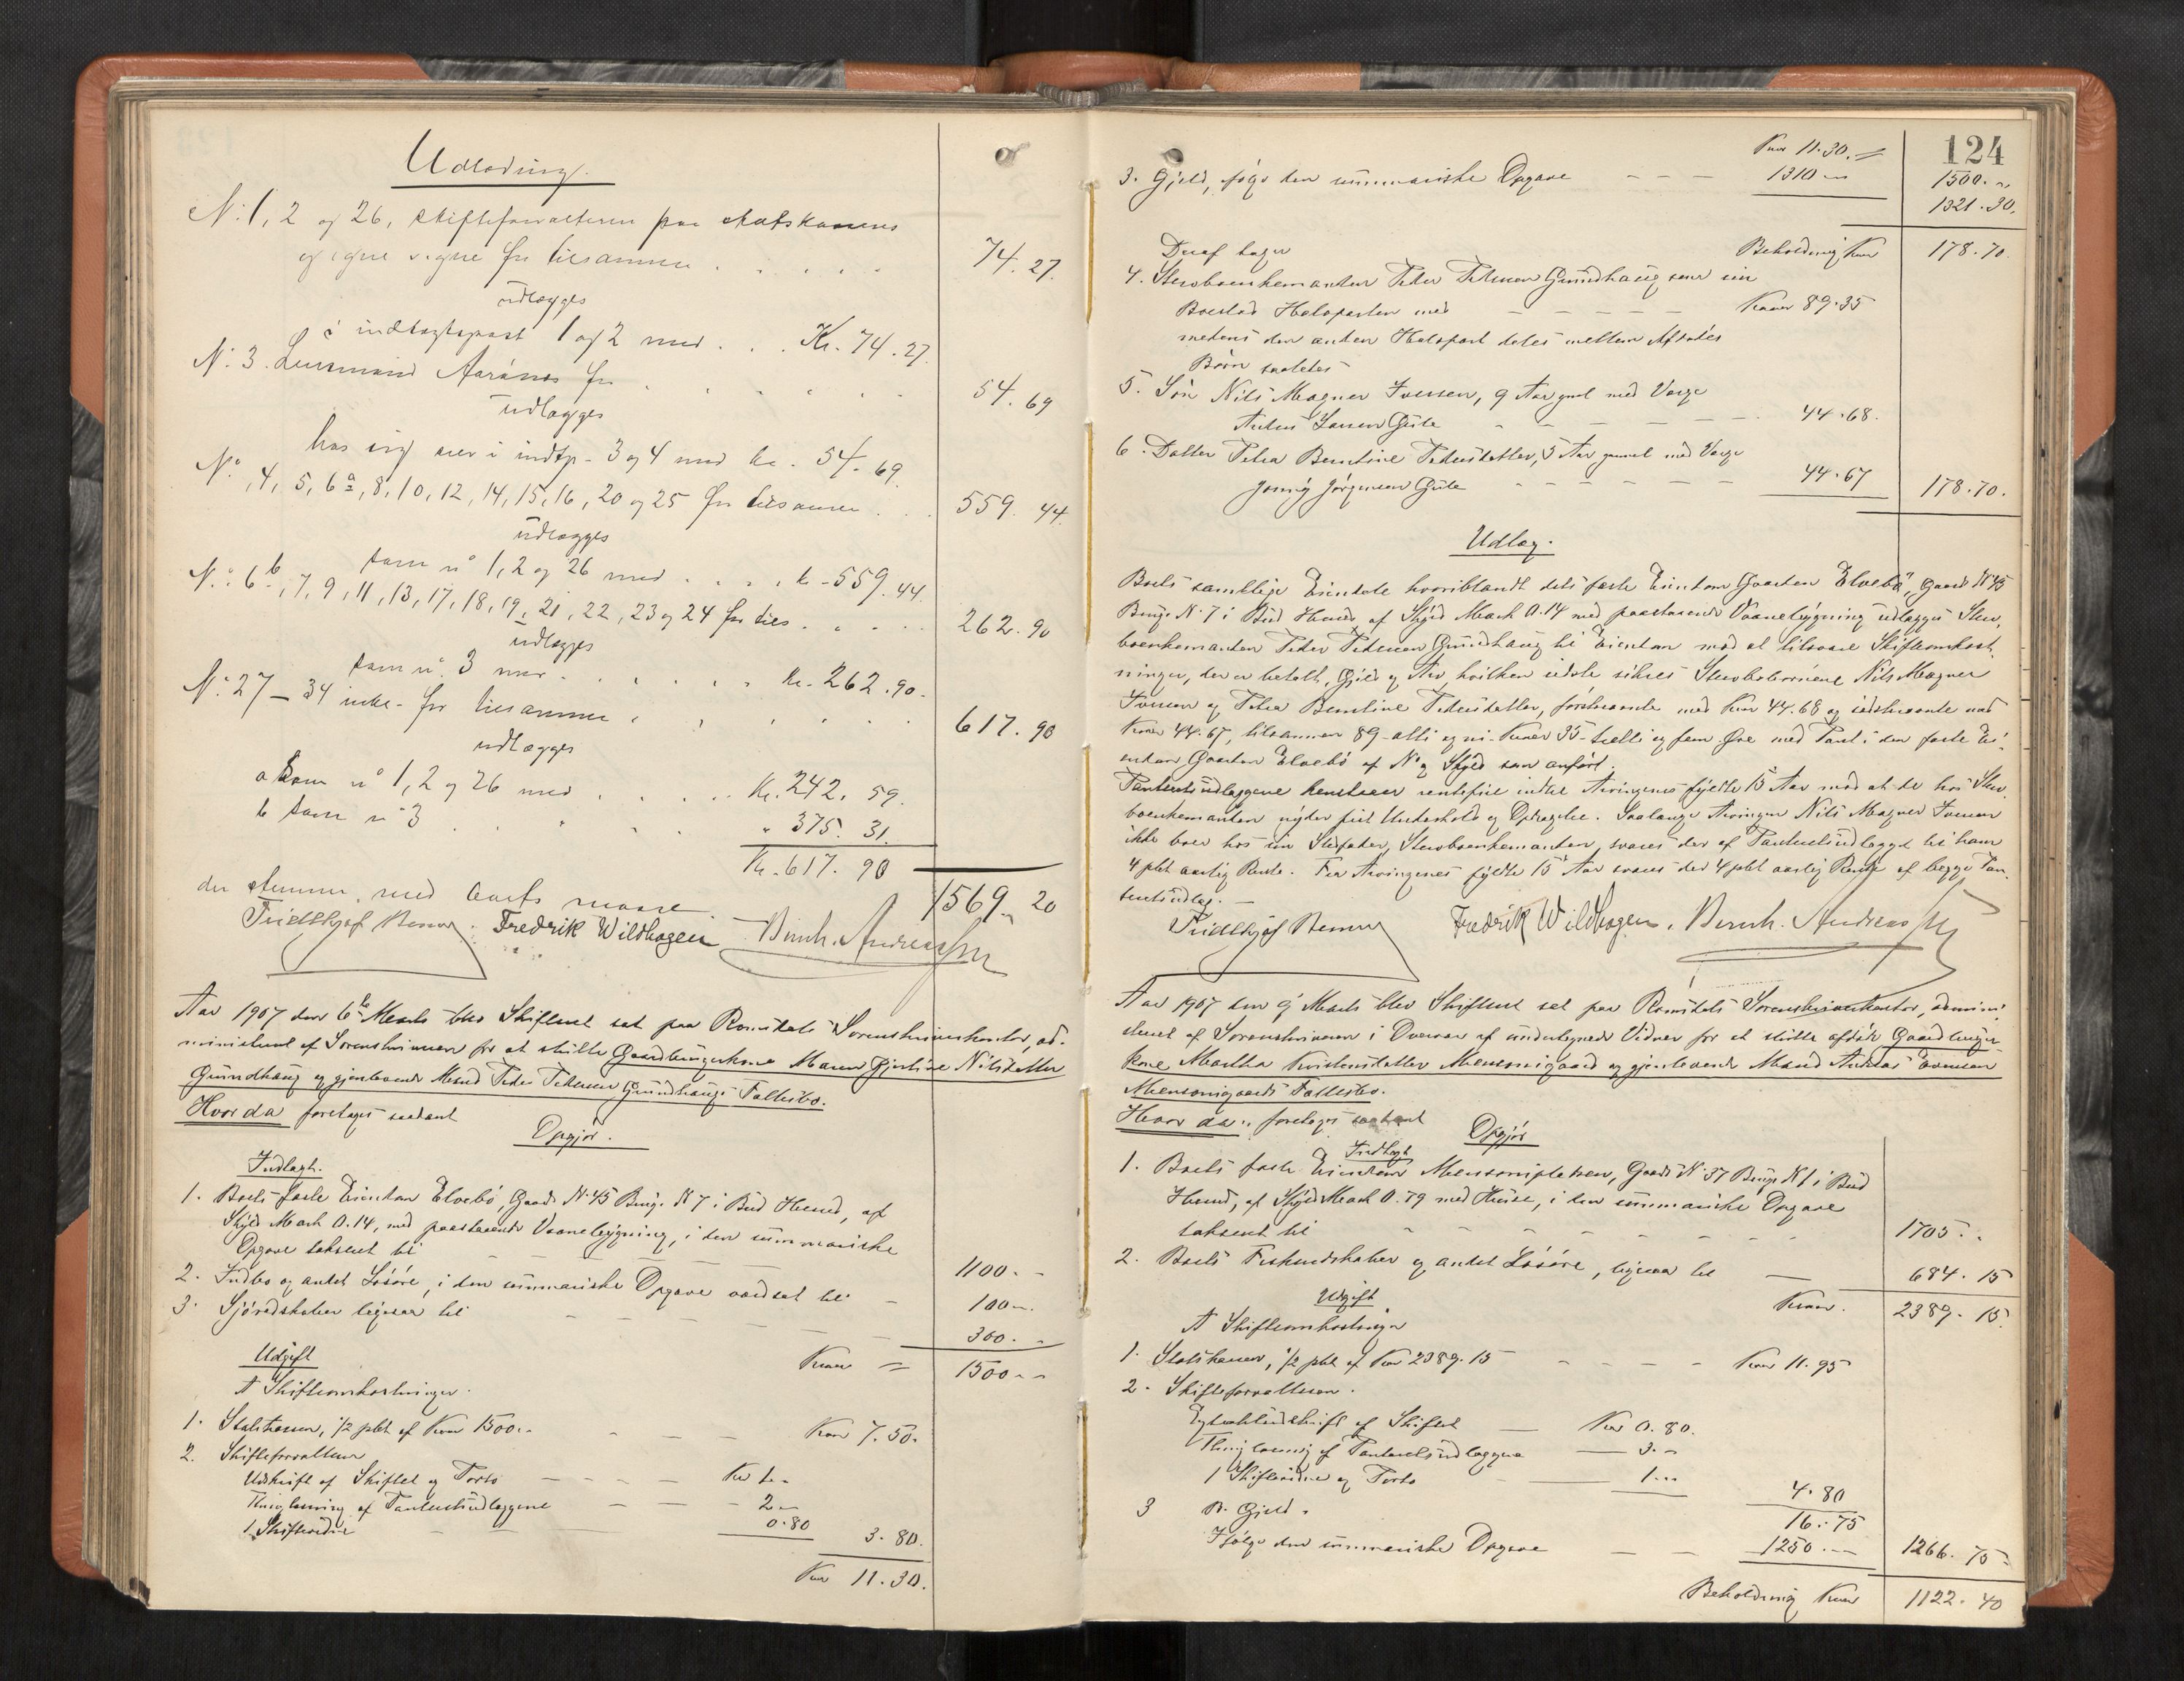 Udlodning.
N: 1, 2 og 26, skifteforvalteren paa statskassens
og egne vegne for tilsammen . . . . . 74. 27.
udlægges
i indtægtspost 1 og 2 med . . . Kr. 74. 27.
N: 3. Lensmand Aarønes for . . . . . . 54. 69
udlægges
hos sig selv i indtp. 3 og 4 med kr. 54. 69.
No. 4, 5, 6a, 8, 10, 12, 14, 15, 16, 20 og 25 for tilsammen . . . 559. 44.
udlægges
som no 1, 2 og 26 med . . . . kr. 559. 44.
N.o: 6b, 7, 9, 11, 13, 17, 18, 19, 21, 22, 23 og 24 for tils. . . . . 262. 90
udlægges
som no. 3 med . . . . . . Kr. 262. 90.
No: 27 — 34 inkl. for tilsammen . . . . . . 617. 90
udlægges
a som no 1, 2 og 26 med . . . . . Kr. 242. 59.
b som no 3 . . . . . " 375. 31.
Kr. 617. 90
der stemmer med boets masse. 1569. 20
Fredrik Wildhagen Bernh. Andreassen
Aar 1907 den 6te Marts blev Skifteret sat paa Romsdals Sorenskriverkontor, ad-
ministreret af Sorenskriveren for at skifte Gaardbrugerkone Maren Gjertine Nilsdatter
Grundhaug og gjenlevende Mand Peder Pedersen Grundhaugs Fællesbo.
Hvor da foretoges saadant
Opgjør.
Indtægt.
1. Boets faste Eiendom Elvebø, Gaards N. 45 Brugs N. 7 i Bud Herred, af
Skyld Mark 0.14, med paastaaende Vaanebygning, i den summariske
Opgave taxeret til — — — 1100. -
2. Indbo og andet Løsøre, i den summariske Opgave værdsat til — 100 -.
3. Sjøredskaber ligesaa til — — — — — 300. -
Kroner = 1500 - -
Udgift
A Skifteomkostninger.
1. Statskassen, 1/2 pct af Kroner 1500.- - — — Kroner 7.50.
2. Skifteforvalteren
Udskrift af Skiftet og Porto — — — Kr 1. -
Thinglæsning af Panteudlæggene — — — 2 —
1 Skiftevidne — — 0.80 3. 80.
Kroner 11. 30.
124
Kroner 11. 30. =
3. Gjeld, følge den summariske Opgave — — — 1310 — 1500. -
1321. 30.
Beholdning Kroner 178. 70.
Deraf tager
4. Stervboenkemanden Peder Pedersen Grundhaug som sin
Boeslod Halvparten med — — — — — Kroner 89.35
medens den anden Halvpart deles mellem Afdødes
Børn saaledes
5. Søn Nils Magner Iversen, 9 Aar gml med Verge
Anton Larsen Gule — — — — — 44. 68.
6. Datter Petra Berntine Pedersdatter, 5 Aar gammel med Verge
Jonny Jørgensen Gule — — — — — 44. 67 178. 70.
Udlæg.
Boets samtlige Eiendele hvoriblandt dets faste Eiendom Gaarden "Elvebø", Gaards N 45
Brugs N. 7 i Bud Herred af Skyld Mark 0.14 med paastaaende Vaanebygning udlægges Sterv-
boenkemanden Peder Pedersen Grundhaug til Eiendom mod at tilsvare Skifteomkost-
ninger, der er betalt, Gjeld og Arv, hvilken sidste sikres Stervboets børnene Nils Magner
Iversen og Petra Berntine Pedersdatter, førstnævnte med Kroner 44.68 og sidstnævnte med
Kroner 44.67, tilsammen 89 - otti og ni - Kroner 35 - trætti og fem - Øre med Pant i den faste Ei-
endom Gaarden Elvebø af No og Skyld som anført.
Panteudlæggene henstaar rentefrit indtil Arvingernes fyldte 15 Aar mod at de hos Sterv-
boenkemanden nyder frit Underhold og Opdragelse. Saalænge Arvingen Nils Magner Iversen
ikke boer hos sin Stedfader, Stervboenkemanden, svares der af Panteudlægget til ham
4 pct aarlig Rente. Fra Arvingernes fyldte 15 Aar svares der 4 pct aarlig Rente af begge Pan-
teudlæg. —
Fredrik Wildhagen. Bernh. Andreassen
Aar 1907 den 9 Marts blev Skifteret sat paa Romsdals Sorenskriverkontor, admini-
streret af Sorenskriveren i Overvær af undertegnede Vidner for at skifte afdøde Gaardbruger-
kone Martha Kristensdatter Mensonigaard og gjenlevende Mand Andreas Evensen
Mensonigaards Fællesbo.
Hvor da foretoges saadant
Opgjør
Indtægt
1. Boets faste Eiendom Mensonipladsen, Gaards N. 37 Brugs N 1 i Bud
Herred, af Skyld Mark 0.79 med Huse, i den summariske Opgave
taxeret til — — — — — — 1705. -
2. Boets Fiskeredskaber og andet Løsøre, ligesaa til — 684. 15
Kroner. 2389. 15.
Udgift
A Skifteomkostninger
1. Statskassen, 1/2 pct af Kroner 2389.15 — — — — Kroner 11.95
2. Skifteforvalteren.
Extraktudskrift af Skiftet — Kr 0. 80.
Thinglæsning af Panteudlæggene — 3. -
1 Skiftevidne og Porto — 1. - - 4. 80
16. 75
3 B. Gjeld.
Ifølge den summariske Opgave — — 1250. — 1266. 75
Beholdning Kroner 1122. 40